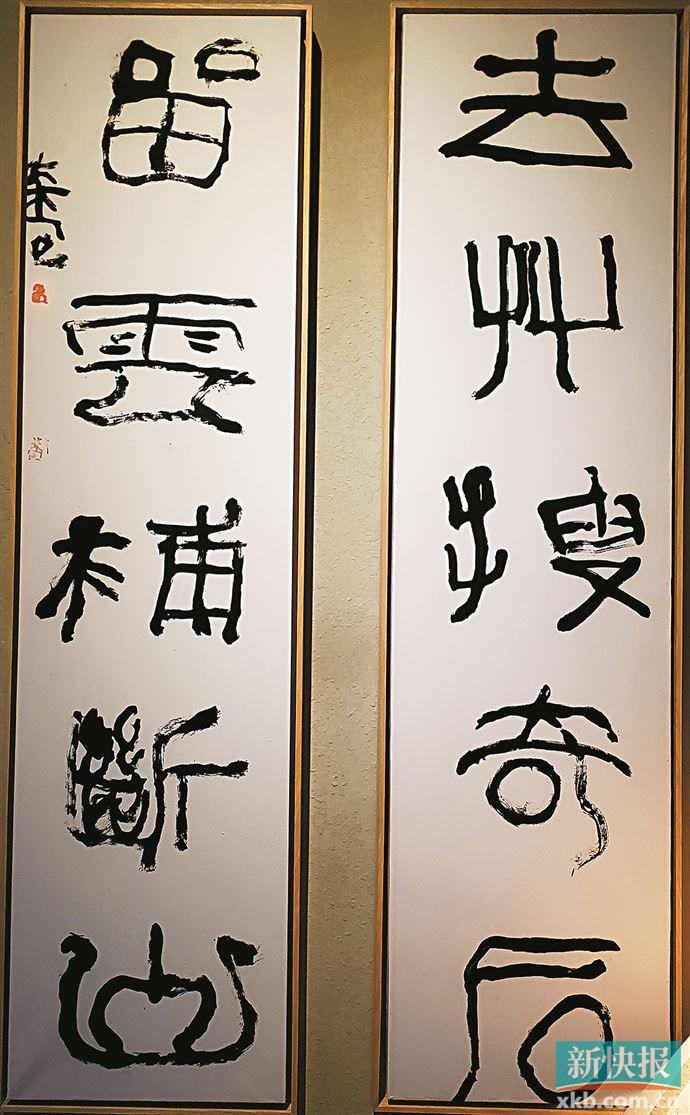 去艸搜奇石
留雲補斷山
新快报
xkb.com.cn